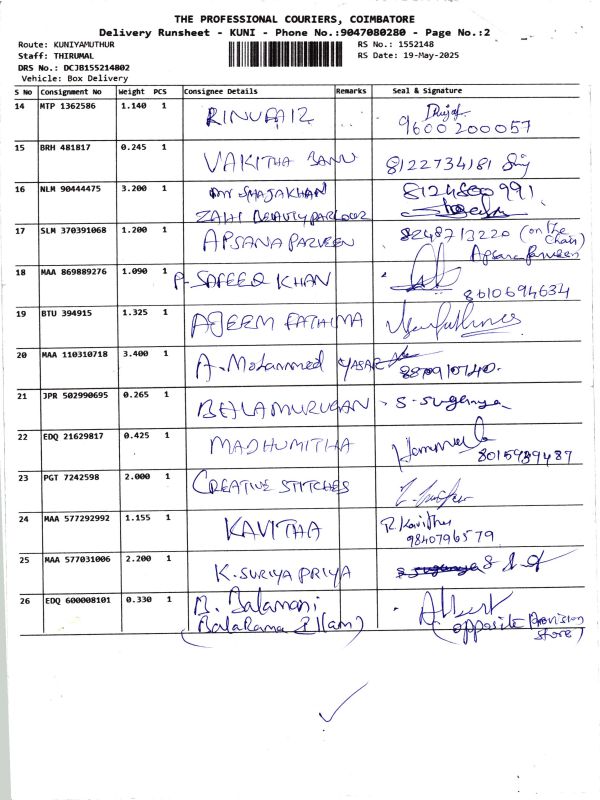 THE PROFESSIONAL COURIERS, COIMBATORE
Delivery Runsheet - KUNI - Phone No.:9047080280 - Page No.:2
Route: KUNIYAMUTHUR RS No.: 1552148
Staff: THIRUMAL RS Date: 19-May-2025
DRS No.: DCJB155214802
Vehicle: Box Delivery
S No Consignment No Weight PCS Consignee Details Remarks Seal & Signature
14 MTP 1362586 1.140 1 RINUFAIZ
9600200057
15 BRH 481817 0.245 1 VAKITHA BANU 8122734181
16 NLM 90444475 3.200 1 SHAJAKHAN 8124860991
ZAHI BEAUTY PARLOUR
17 SLM 370391068 1.200 1 APSANA PARVEEN 8248713220 (on the Chair)
Apsana Parveen
18 MAA 869889276 1.090 1 P. SAFEEQ KHAN
8610694634
19 BTU 394915 1.325 1 AJEEM FATHIMA
20 MAA 110310718 3.400 1 A. Mohammed YASAR
21 JPR 502990695 0.265 1 BALAMURUGAN - S. Suganya
22 EDQ 21629817 0.425 1 MADHUMITHA
8015989487
23 PGT 7242598 2.000 1 CREATIVE STITCHES
24 MAA 577292992 1.155 1 KAVITHA R. Kavitha
9840796579
25 MAA 577031006 2.200 1 K. SURIYA PRIYA
26 EDQ 600008101 0.330 1 B. Balamani Albert
(BalaRama Illam) (opposite Provision store)